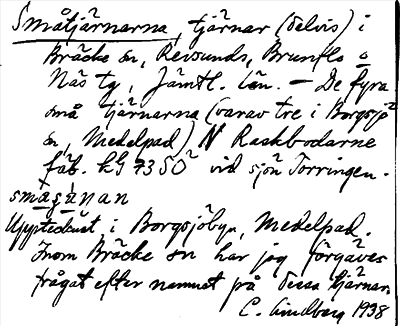 Småtjärnarna, tjärnar (delvis) i
Bräcke sn, Revsunds, Brunflo o
Näs tg, Jämtl. län. – De fyra
små tjärnarna (varav tre i Borgsjö
sn, Medelpad) N Raskbodarne
fäb. kG 73 SO² vid sjön Torringen.
småtjänan
Upptecknat i Borgsjöbyn, Medelpad.
Inom Bräcke sn har jag förgäves
frågat efter namnet på dessa tjärnar.
C. Lindberg 1938